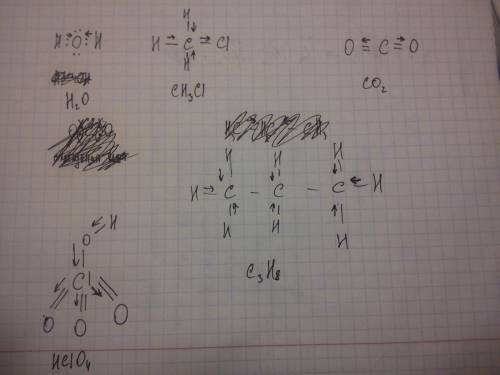 H :Ö: H
H
H = C = Cl
H
O = C = O
H₂O
CH₃Cl
CO₂
H H H
H = C - C - C - H
H H H
C₃H₈
H
O
Cl
O O O
HClO₄